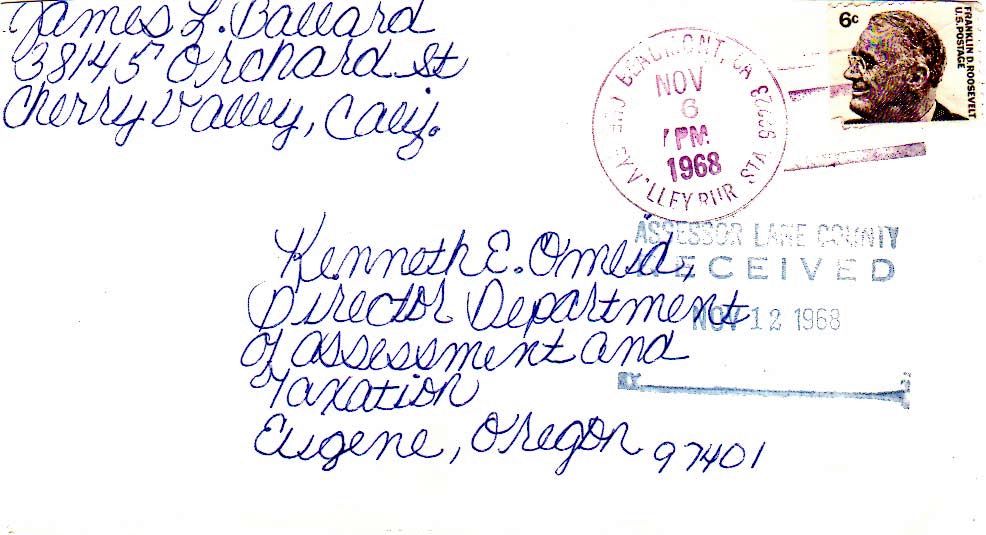 James L. Ballard
38145 Orchard St
Cherry Valley, Calif.
BEAUMONT, CA 92223
NOV
6
PM
1968
STA
6c
FRANKLIN D. ROOSEVELT
U.S. POSTAGE
ASSESSOR LANE COUNTY
RECEIVED
NOV 12 1968
Kenneth E. Omeid,
Director Department
of Assessment and
Taxation
Eugene, Oregon 97401